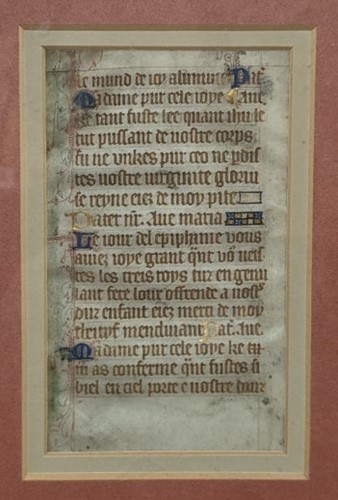 le mund de icy alumine Pat̄
Madame pur cele ioye Aue
ke tant fuste lee quant ihu le
tut pussant de nostre corps
fu ne vnkes pur ceo ne pdis
tes vostre uirginite gloriu
se reyne eiez de moy pite
Pater nr̄. Aue maria
Le iour del epiphanie vous
auiez ioye grant qn̄t vo ueis
tes les treis roys en genu
lant fere lour offrende a nostr̄
dur enfant eiez merci de moy
mendiuant Pat̄. Aue.
Madame pur cele ioye ke
as conferme qn̄t fustes si
biel en ciel porte e nostre